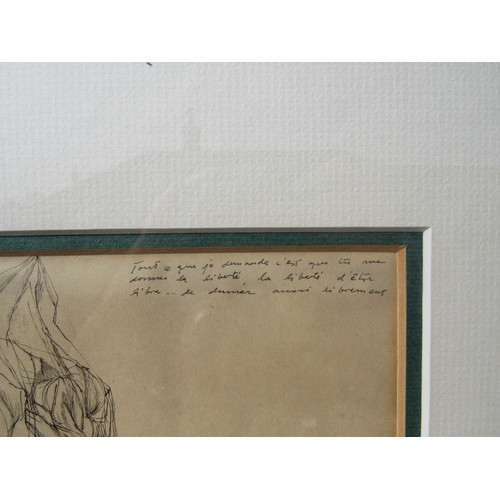 Tout ce que je demande c'est que tu me
donnes la liberté la liberté d'être
libre... de donner aussi librement